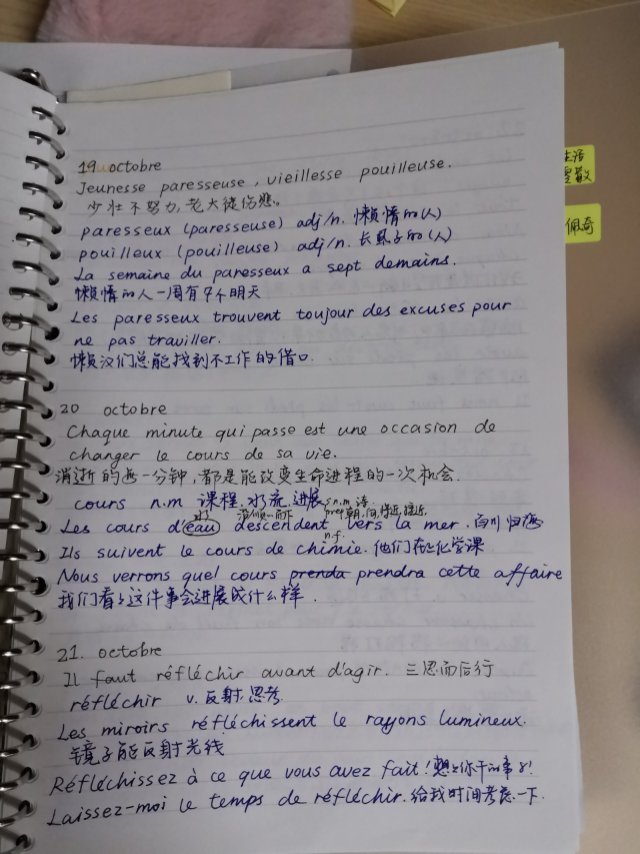 19 octobre
Jeunesse paresseuse, vieillesse pouilleuse.
少壮不努力,老大徒伤悲。
paresseux (paresseuse) adj/n. 懒惰的(人)
pouilleux (pouilleuse) adj/n. 长虱子的(人)
La semaine du paresseux a sept demains.
懒惰的人一周有7个明天
Les paresseux trouvent toujour des excuses pour
ne pas traviller.
懒汉们总能找到不工作的借口.
20 octobre
Chaque minute qui passe est une occasion de
changer le cours de sa vie.
消逝的每一分钟,都是能改变生命进程的一次机会.
cours n.m 课程.水流.进展
prep朝,向,将近,接近
n.f.
Les cours d'eau descendent vers la mer. 百川归海
Ils suivent le cours de chimie. 他们在上化学课
Nous verrons quel cours prenda prendra cette affaire
我们看看这件事会进展成什么样.
21. octobre
Il faut réfléchir avant d'agir. 三思而后行
réfléchir v. 反射.思考.
Les miroirs réfléchissent le rayons lumineux.
镜子能反射光线
Réfléchissez à ce que vous avez fait! 想想你干的事!
Laissez-moi le temps de réfléchir. 给我时间考虑一下.
生活
佩奇